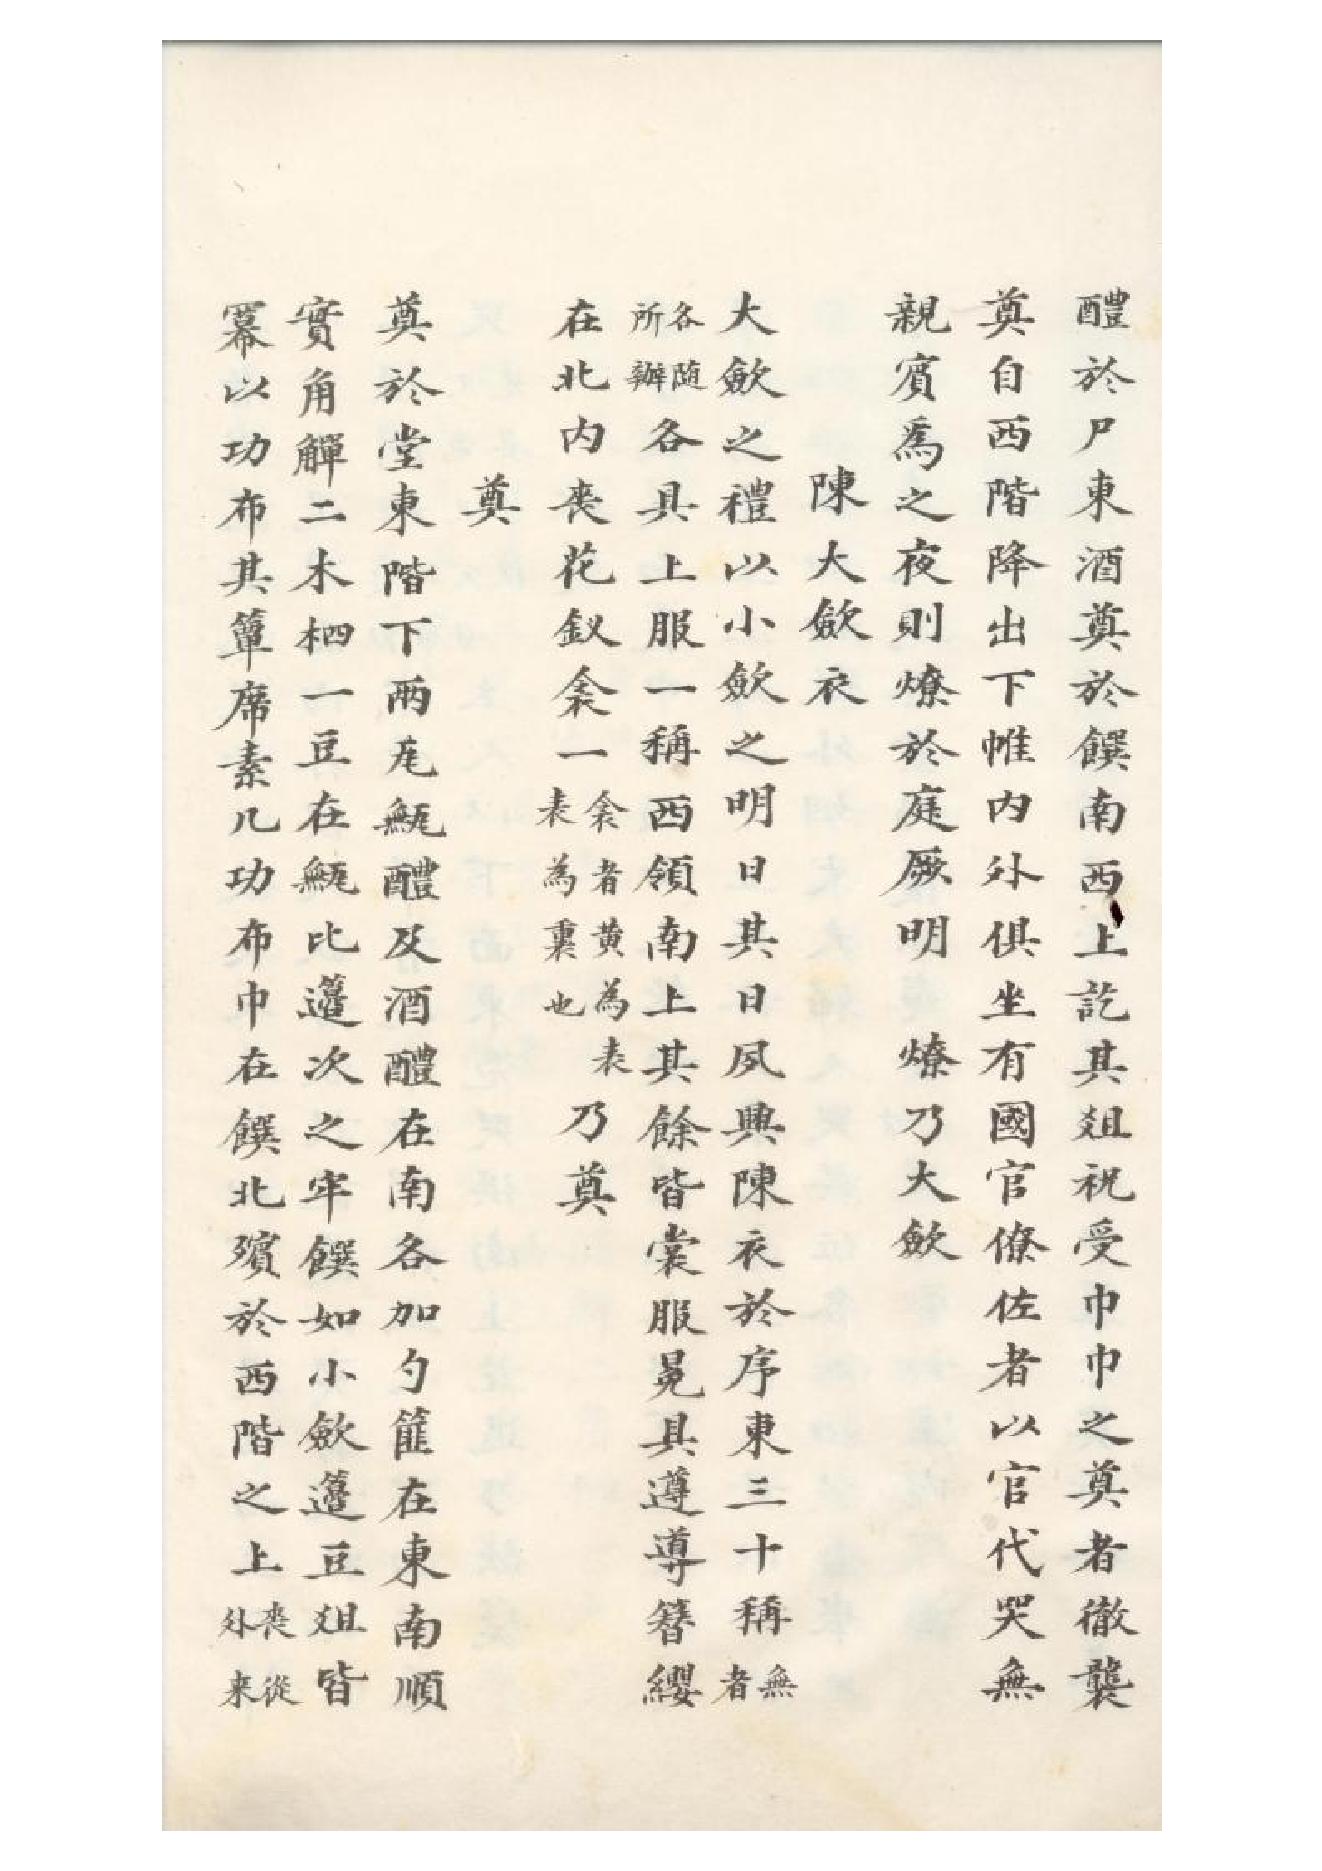 醴於尸東酒奠於饌南西上訖其爼祝受巾巾之奠者徹襲
奠自西階降出下帷內外俱坐有國官僚佐者以官代哭無
親賓爲之夜則燎於庭厥明　燎乃大斂
陳大斂衣
大斂之禮以小斂之明日其日夙興陳衣於序東三十稱無者
各隨所辦各具上服一稱西領南上其餘皆裳服冕具遵導簪纓
在北內喪花釵衾一衾者黄為表表為裏也乃奠
奠
奠於堂東階下兩㡯甒醴及酒醴在南各加勺篚在東南順
實角觶二木柶一豆在甒北籩次之牢饌如小斂籩豆爼皆
冪以功布其簟席素几功布巾在饌北殯於西階之上喪從外来